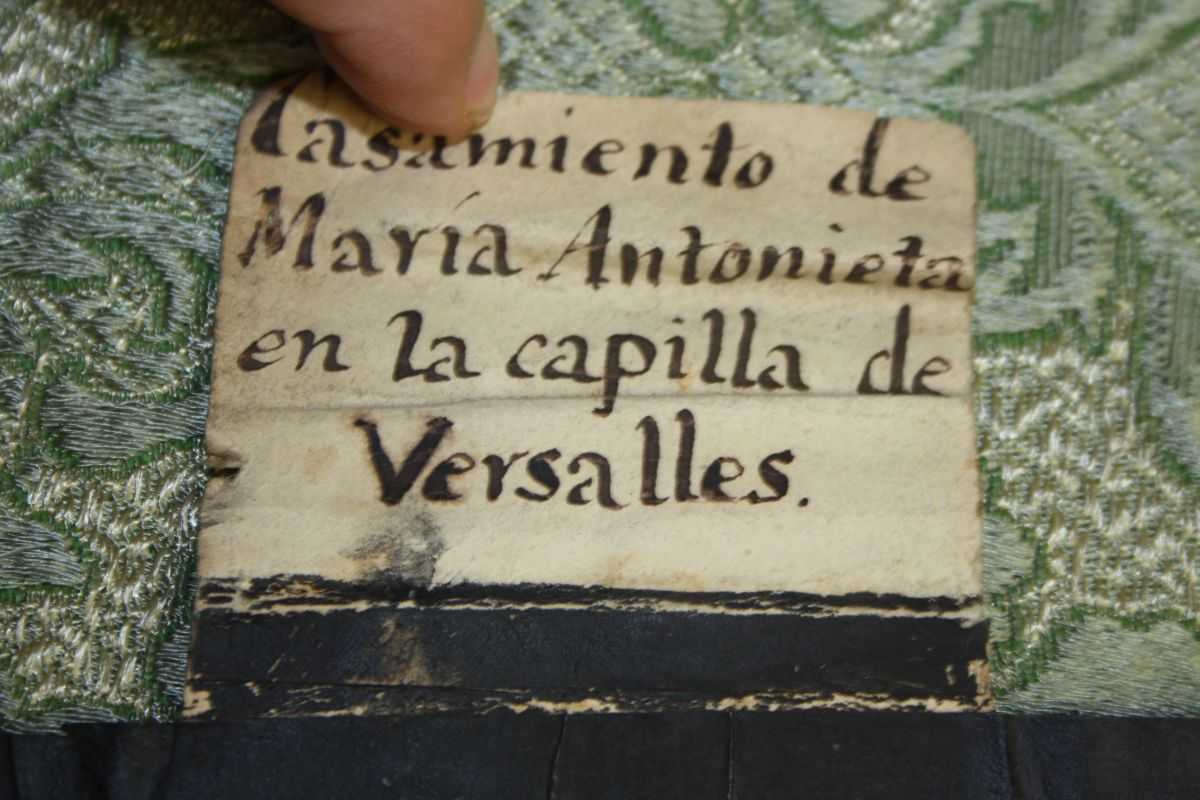 Casamiento de
María Antonieta
en la capilla de
Versalles.